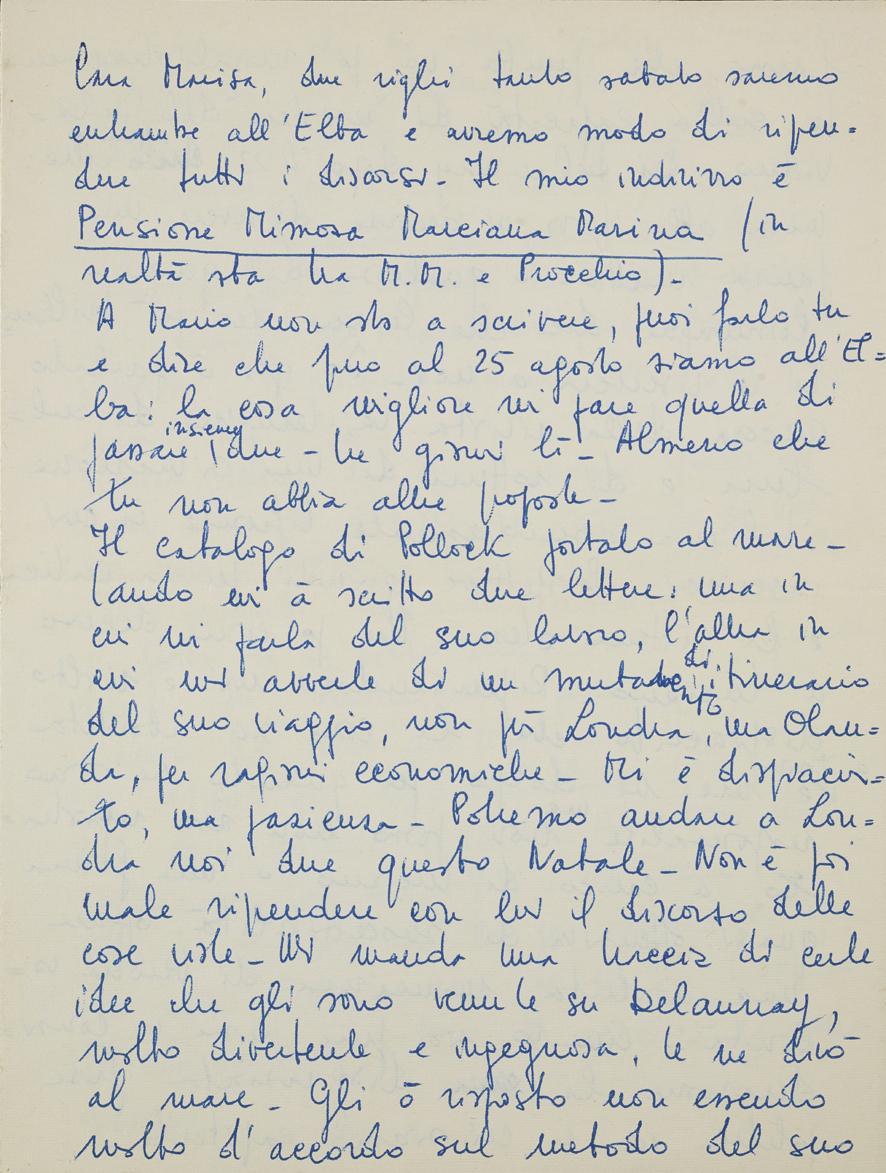 Cara Marisa, due righi tanto sabato saremo
entrambe all'Elba e avremo modo di ripren=
dere tutti i discorsi - Il mio indirizzo è
Pensione Mimosa Marciana Marina (in
realtà sta tra M.M. e Procchio).
A Mario non sto a scrivere, puoi farlo tu
e dire che fino al 25 agosto siamo all'El=
ba: la cosa migliore mi pare quella di
passare insieme due - tre giorni lì - Almeno che
tu non abbia altre proposte -
Il catalogo di Pollock portalo al mare -
Lando mi à scritto due lettere: una in
cui mi parla del suo lavoro, l'altra in
cui mi avverte di un mutamento di itinerario
del suo viaggio, non più Londra, ma Olan=
da, per ragioni economiche - Mi è dispiaciu=
to, ma pazienza - Potremo andare a Lon=
dra noi due questo Natale - Non è poi
male riprendere con lui il discorso delle
cose viste - Mi manda una traccia di certe
idee che gli sono venute su Delaunay,
molto divertente e ingegnosa, te ne dirò
al mare - Gli ò risposto non essendo
molto d'accordo sul metodo del suo